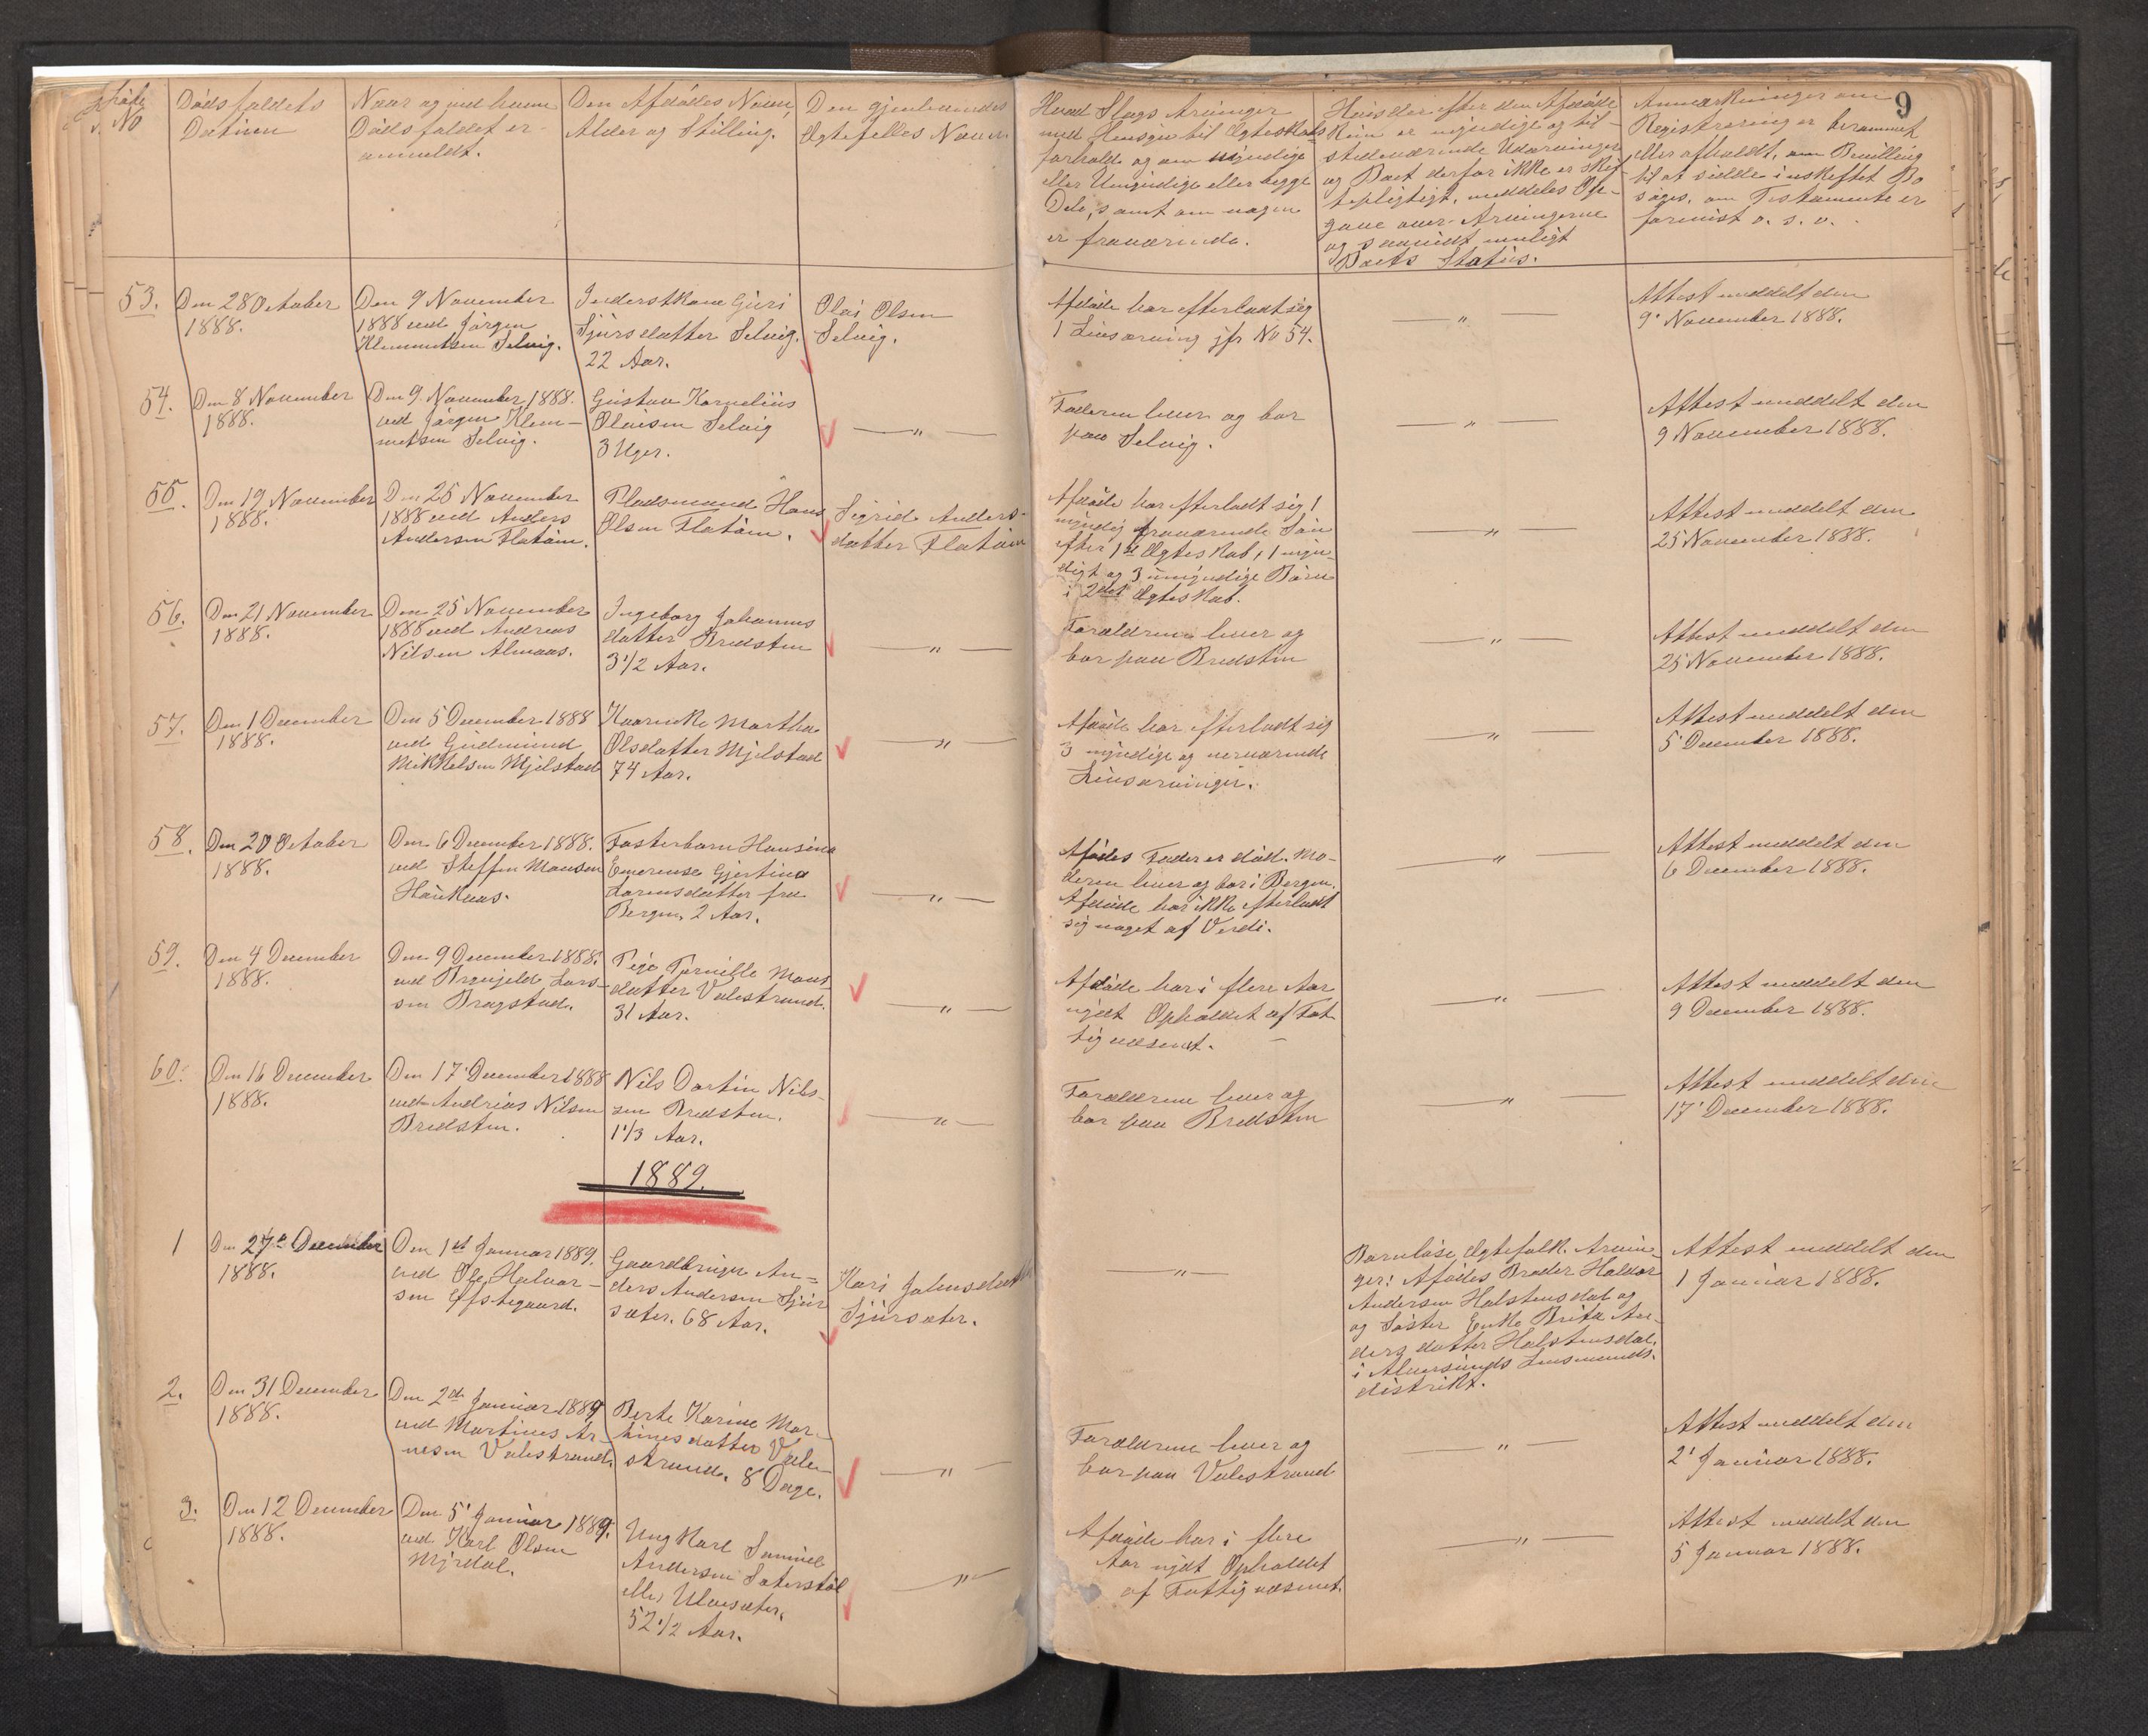 9
No
Dødsfaldets
Datum
Naar og ved hvem
Dødsfaldet er
anmeldt.
Den Afdødes Navn,
Alder og Stilling.
Den gjenlevendes
Ægtefælles Navn
Hvad Slags Arvinger
med Hensyn til Ægteskabs
forhold og om myndige
eller Umyndige eller begge
Dele, samt om nogen
er fraværende.
Hvis der efter den Afdøde
Kun er myndige og til-
stedeværende Udarvinger
og Boet derfor ikke er skif-
tepligtigt, meddeles Op-
gave over Arvingerne
og saavidt muligt
Boets Status.
Anmærkninger om
Registrering er berammet
eller afholdt, om Bevilling
til at sidde i uskiftet Bo
søges, om Testamente er
forevist o. s. v.
53.
Den 28 October
1888.
Den 9 November
1888 ved Jørgen
Klemmetsen Selvig.
Inderstkone Guri
Sjursdatter Selvig.
22 Aar.
Olai Olsen
Selvig.
Afdøde har efterladt sig
1 Livsarving jfr No 54.
— „ —
Attest meddelt den
9' November 1888.
54.
Den 8 November
1888.
Den 9. November 1888.
ved Jørgen Klem-
metsen Selvig.
Gustav Kornelius
Olaisen Selvig
3 Uger.
— „ —
Faderen lever og bor
paa Selvig.
— „ —
Attest meddelt den
9 November 1888.
55.
Den 19 November
1888.
Den 25 November
1888 ved Anders
Andersen Flatøen.
Pladsmand Hans
Olsen Flatøen.
Sigrid Anders-
datter Flatøen
Afdøde har efterladt sig 1
myndig fraværende Søn
efter 1ste Ægteskab, 1 myn-
digt og 3 umyndige Børn
i 2det Ægteskab.
— „ —
Attest meddelt den
25 November 1888.
56.
Den 21 November
1888.
Den 25 November
1888 ved Andreas
Nilsen Almaas.
Ingeborg Johannes
datter Bredsten
3 1/2 Aar.
— „ —
Forældrene lever og
bor paa Bredsten
— „ —
Attest meddelt den
25 November 1888.
57.
Den 1 December
1888.
Den 5 December 1888
ved Gudmund
Mikkelsen Mjelstad
Kaarenke Martha
Olsdatter Mjelstad
74 Aar.
— „ —
Afdøde har efterladt sig
3 myndige og nærværende
Livsarvinger.
— „ —
Attest meddelt den
5' December 1888.
58.
Den 20 October
1888.
Den 6 December 1888.
ved Steffen Monsen
Haukaas.
Fosterbarn Hansina
Emerense Gjertina
Larensdatter fra
Bergen, 2 Aar.
— „ —
Afdødes Fader er død. Mo-
deren lever og bor i Bergen.
Afdøde har ikke efterladt
sig noget af Verdi.
— „ —
Attest meddelt den
6 December 1888.
59.
Den 4 December
1888.
Den 9 December 1888.
ved Brynjeld Lars-
sen Bragstad.
Pige Pernille Mons
datter Valestrand.
31 Aar.
— „ —
Afdøde har i flere Aar
nydt Opholdet af Fat
tigvæsenet.
— „ —
Attest meddelt den
9 December 1888.
60.
Den 16 December
1888.
Den 17' December 1888
ved Andreas Nilsen
Bredsten.
Nils Dortin Nils-
sen Bredsten.
1 1/3 Aar.
— „ —
Forældrene lever og
bor paa Bredsten
— „ —
Attest meddelt den
17' December 1888.
1889.
1
Den 27de December
1888.
Den 1st Januar 1889.
ved Ole Halvor-
sen Efstegaard.
Gaardbruger An-
ders Andersen Sjur
sæter. 68 Aar.
Kari Johnsdatter
Sjursæter.
— „ —
Barnløse Ægtefolk. Arvin-
ger: Afdødes Broder Haldor
Andersen Halstensdal og
og Søster Enke Brita An-
dersdatter Halstensdal.
i Alversunds Lensmands-
distrikt.
Attest meddelt den
1 Januar 1888.
2.
Den 31 December
1888.
Den 2de Januar 1889
ved Martines Ar-
nesen Valestrand.
Berte Karine Mar-
tinesdatter Vale-
strand. 8 Dage.
— „ —
Forældrene lever og
bor paa Valestrand
— „ —
Attest meddelt den
2' Januar 1888.
3.
Den 12 December
1888.
Den 5' Januar 1889.
ved Karl Olsen
Mjrdal.
Ungkarl Samuel
Andersen Sæterstøl
eller Ulvesæter.
52 1/2 Aar.
— „ —
Afdøde har i flere
Aar nydt Opholdet
af Fattigvæsenet.
— „ —
Attest meddelt den
5 Januar 1888.